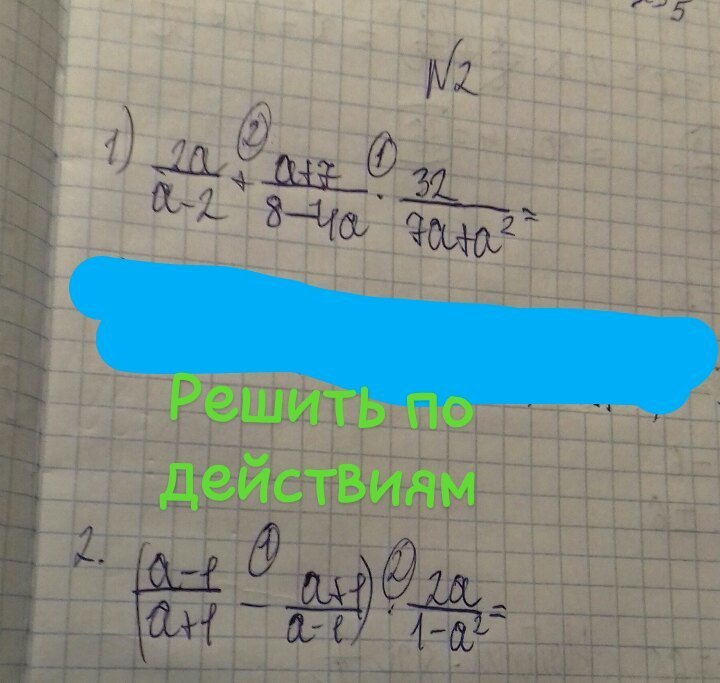 N2
1) 2a/(a-2) ② + (a+7)/(8-4a) ① · 32/(7a+a²) =
Решить по
действиям
2. ((a-1)/(a+1) ① - (a+1)/(a-1)) ② : 2a/(1-a²) =